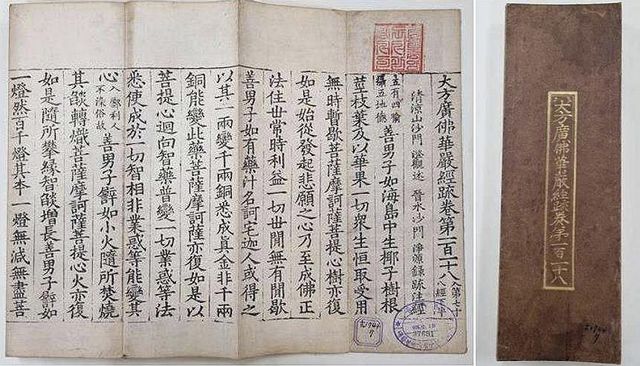 大方廣佛華嚴經疏卷第一百一十八 入第七十八經下半
清涼山沙門 澄觀述 晉水沙門 淨源錄疏注經
五有四喻攝五地德 善男子如海島中生椰子樹根
莖枝葉及以華果一切眾生恒取受用
無時暫歇菩薩摩訶薩菩提心樹亦復
如是始從發起悲願之心乃至成佛正
法住世常時利益一切世間無有間歇
善男子如有藥汁名訶宅迦人或得之
以其一兩變千兩銅悉成真金非千兩
銅能變此藥菩薩摩訶薩亦復如是以
菩提心迴向智藥普變一切業惑等法
悉使成於一切智相非業惑等能變其
心 善男子譬如小火隨所焚燒
其燄轉熾菩薩摩訶薩菩提心火亦復
如是隨所攀緣智燄增長善男子譬如
一燈然百千燈其本一燈無減無盡菩
大方廣佛華嚴經疏卷第一百一十八